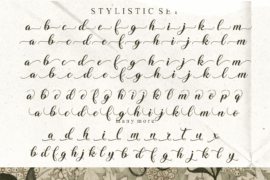 STYLISTIC Set
a b c d e f g h i j k l m
a b c d e f g h i j k l m
a b c d e f g h i j k l m
a b c d e f g h i j k l m
a b c d e f g h i j k l m n o p q
a b c d e f g h i j k l m n o
many more
a d h i l m n r t u x
b d f g h k l y b d f g h k l y